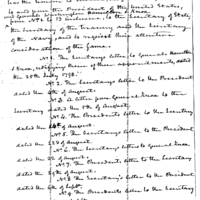 to and from the President of the United States,
No 1 to 13 inclusive, to the Secretary of State,
the Secretary of the Treasury and the Secretary
of the Navy, and to request their attentive
consideration of the same.
No 1. The Secretary's letter to General Hamilton
& Knox, notifying them of their appointments, dated
the 25th July 1798.
No 2. The Secretary's letter to the President
dated the 4th of August.
No 3. A letter from General Knox to the
Secretary dated the 5th of August.
No 4. The President's letter to the Secretary
dated the 14th of August.
No 5. The Secretary's letter to the President
dated the of August.
No 6. The Secretary's letter to General Knox
dated the of August.
No 7. The President's letter to the Secretary
dated the 29th of August.
No 8. The Secretary's letter to the President
dated the 6th of Sept.
No 9. The President's letter to the Secretary